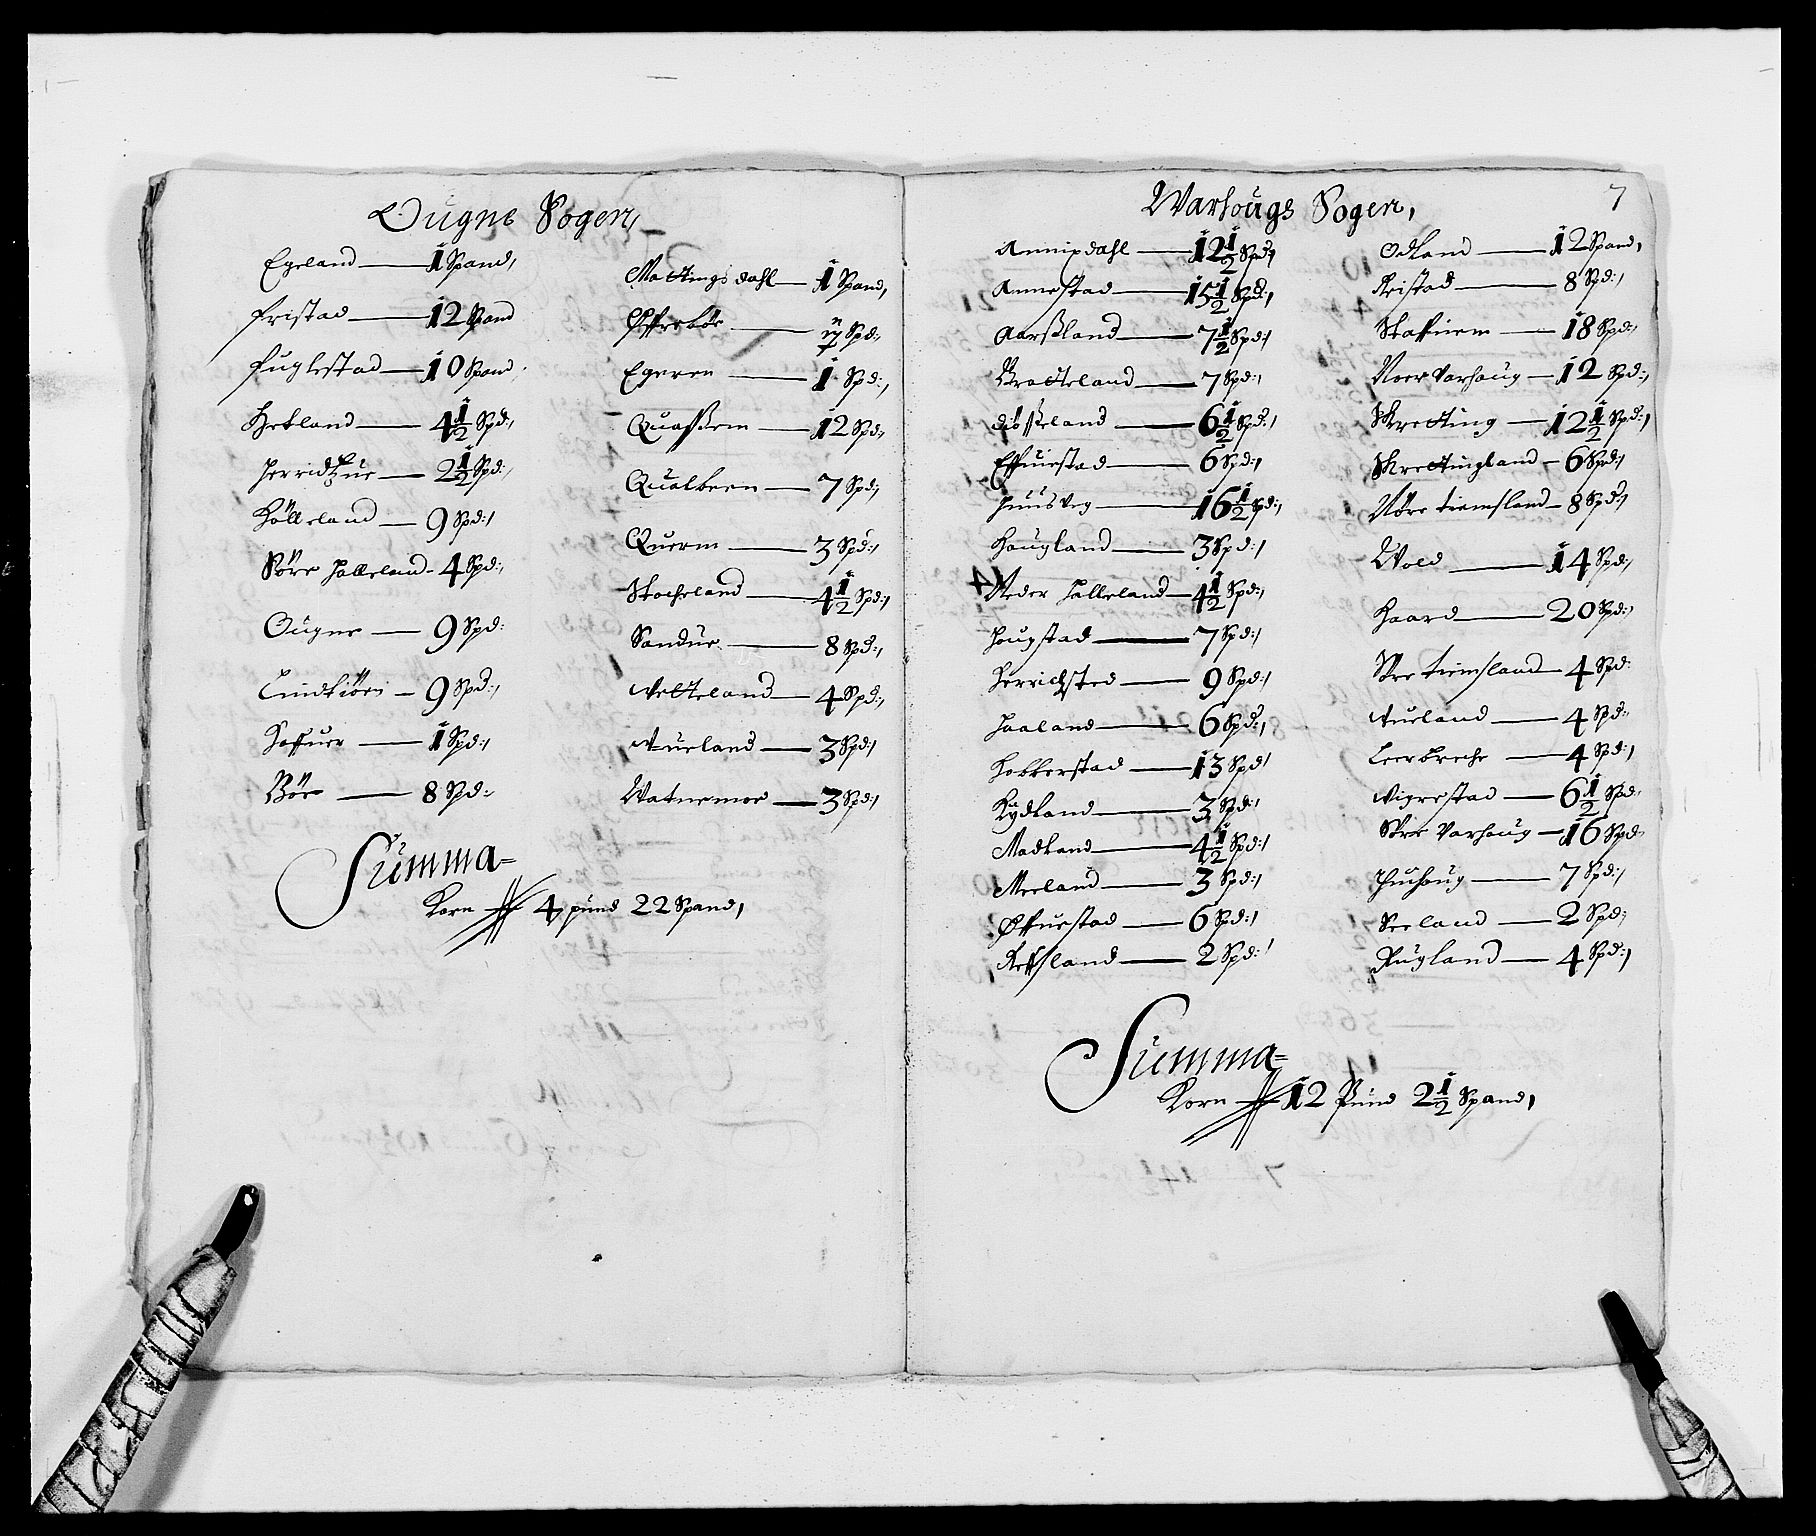 Ougne Sogen,
Egeland — 1 Spand,
Fristad — 12 Spand
Fuglestad — 10 Spand,
Hetland — 4 1/2 Spd:,
— 2 1/2 Spd:,
Hölleland — 9 Spd:,
Söre Halleland - 4 Spd:,
Ougne — 9 Spd:
— 9 Spd:,
— 1 Spd:,
Böe — 8 Spd:
Mattingsdahl — 1 Spand,
Øffreböe — Spd:,
Egeren — 1 Spd:,
Quassem — 12 Spd:,
Qualbeen — 7 Spd:,
Querm — 3 Spd:,
Stocheland — 4 1/2 Spd:,
Sandue — 8 Spd:,
Vetteland — 4 Spd:,
Aueland — 3 Spd:,
Watnemoe — 3 Spd:,
Summa =
Korn 4 pund 22 Spand,
Warhougs Sogen,
7
Annixdahl — 12 1/2 Spd:,
Annestad — 15 1/2 Spd:,
Aarßland — 7 1/2 Spd:,
Bratteland — 7 Spd:,
— 6 1/2 Spd:,
Effuestad — 6 Spd:,
Huusveg — 16 1/2 Spd:,
Hougland — 3 Spd:,
Neder Halleland — 4 1/2 Spd:,
Hougstad — 7 Spd:,
Herrichsted — 9 Spd:,
Haaland — 6 Spd:,
Kobberstad — 13 Spd:
Kydland — 3 Spd:,
Madland — 4 1/2 Spd:,
Meeland — 3 Spd:,
Øffuestad — 6 Spd:,
Refsland — 2 Spd:,
Odland — 12 Spand,
Reistad — 8 Spd:,
Staffnem — 18 Spd:,
Noer Varhoug — 12 Spd:,
Skretting — 12 1/2 Spd:,
Skrettingland — 6 Spd:,
Nöre tiemsland — 8 Spd:,
Wold — 14 Spd:,
Haard — 20 Spd:,
Söre tiemsland — 4 Spd:
Aueland — 4 Spd:
Leerbreche — 4 Spd:,
Vigrestad — 6 1/2 Spd:
Söre Varhoug — 16 Spd:
Thuhoug — 7 Spd:,
Seeland — 2 Spd:,
Rugland — 4 Spd:,
Summa =
Korn 12 Pund 2 1/2 Spand,